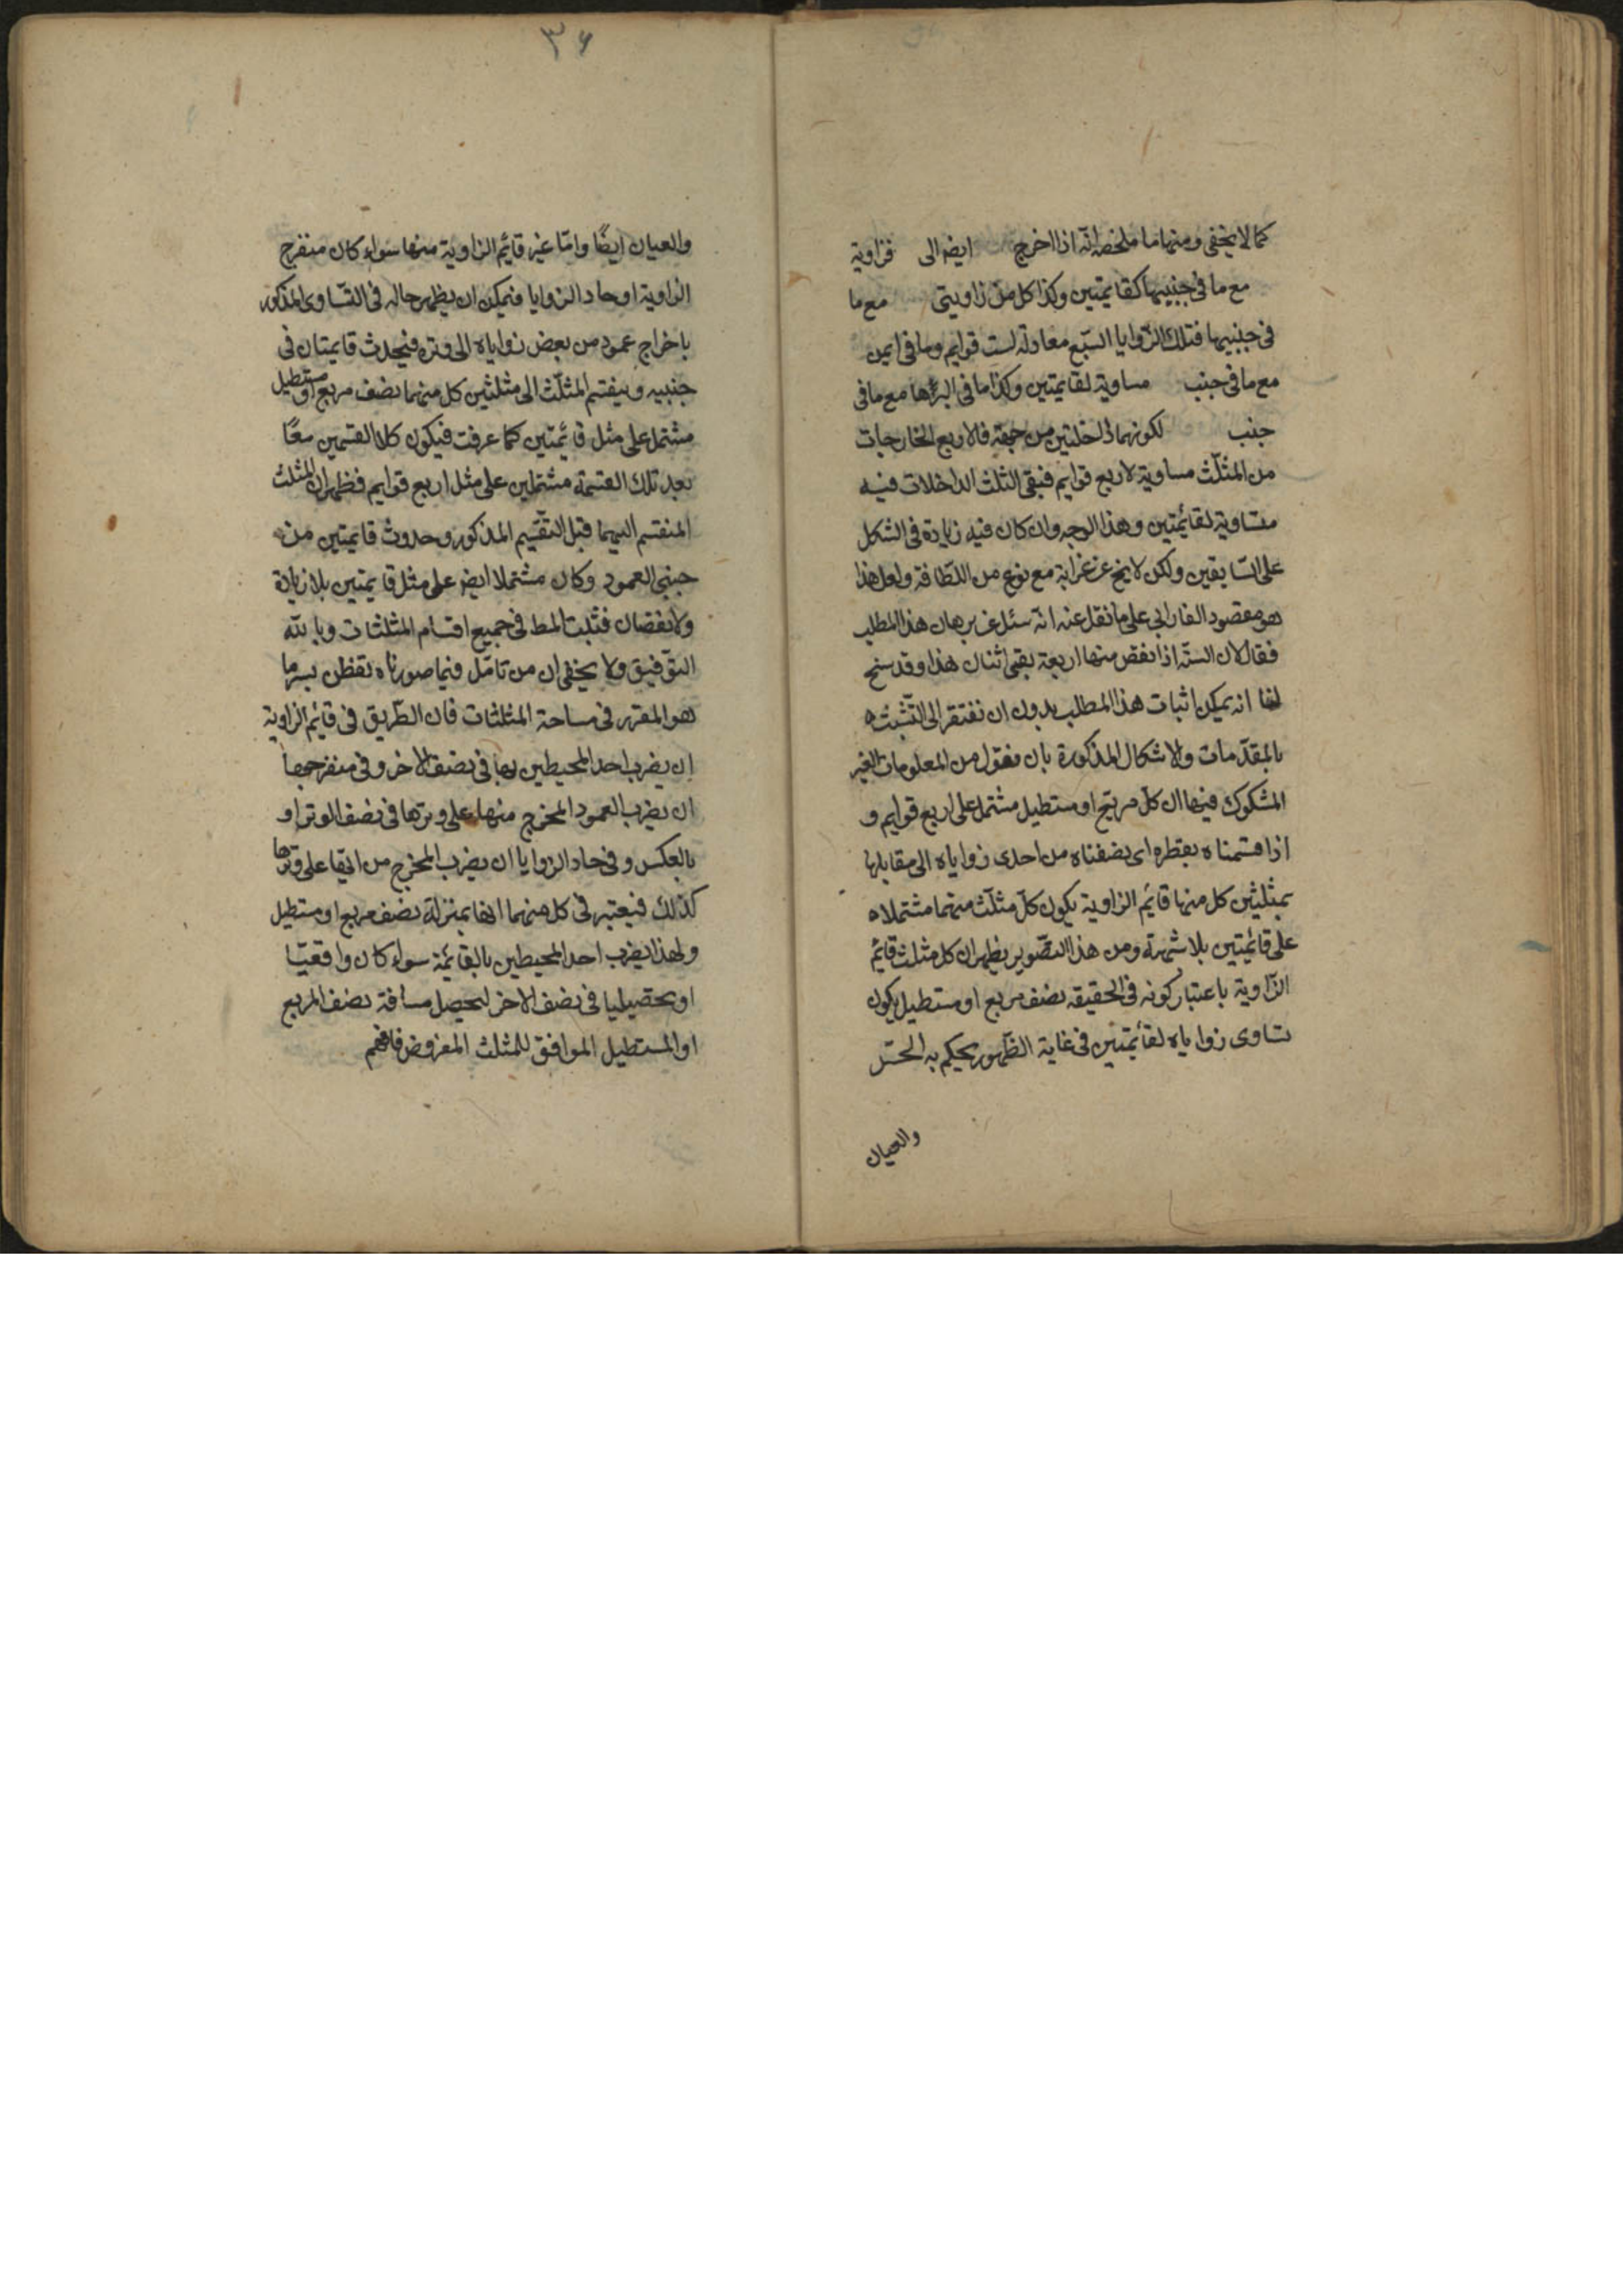 كما لا يخفى ومنها ما ملخصه انّه اذا اخرج ايض الى فزاوية
مع ما فى جنبيها كقايمتين وكذا كل من زاويتى مع ما
فى جنبيها فتلك الزّوايا السّبع معادلة لست قوايم وما فى ايمن
مع ما فى جنب مساوية لقايمتين وكذا ما فى مع ما فى
جنب لكونهما داخلتين من جهة فالاربع الخارجات
من المثلّث مساوية لاربع قوايم فبقى الثلث الداخلات فيه
مساوية لقائمتين وهذا الوجه وان كان فيه زيادة فى الشكل
على السّابقين ولكن لا يخ عن غرابة مع نوع من اللطافة ولعل هذا
هو مقصود الفارابى على ما نقل عنه انّه سئل عن برهان هذا المطلب
فقال لان الستّة اذا نقص منها اربعة بقى اثنان هذا وقد سنح
لنا انه يمكن اثبات هذا المطلب بدون ان نفتقر الى التّشبّث
بالمقدّمات والاشكال المذكورة بان نقول من المعلومات الغير
المشكوك فيها ان كلّ مربّع او مستطيل مشتمل على اربع قوايم و
اذا قسمناه بقطره اى نصفناه من احدى زواياه الى مقابلها
بمثلّثين كل منها قايم الزاوية يكون كلّ مثلّث منهما مشتملا
على قائمتين بلا شبهة ومن هذا التصّوير يظهر ان كل مثلث قائم
الزّاوية باعتبار كونه فى الحقيقه نصف مربع او مستطيل يكون
تساوى زواياه لقائمتين فى غاية الظّهور يحكم به الحسّ
والعيان
٣٦
والعيان ايضًا وامّا غير قايم الزاوية منها سواء كان منفرج
الزاوية او حاد الزوايا فيمكن ان يظهر حاله فى التّساوى المذكور
باخراج عمود من بعض زواياه الى وتره فيحدث قايمتان فى
جنبيه وينقسم المثلّث الى مثلثين كل منهما نصف مربع او مستطيل
مشتمل على مثل قائمتين كما عرفت فيكون كلا القسمين معًا
بعد تلك القسمة مشتملين على مثل اربع قوايم فظهر ان المثلث
المنقسم اليهما قبل التّقسيم المذكور وحدوث قايمتين من
جنبى العمود وكان مشتملا ايض على مثل قايمتين بلا زيادة
ولا نقصان فثبت المط فى جميع اقسام المثلثات وبالله
التوّفيق ولا يخفى ان من تامّل فيما صورناه تفطن بسر ما
هو المقرر فى مساحة المثلثات فان الطّريق فى قائم الزاوية
ان يضرب احد المحيطين بها فى نصف الاخر وفى منفرجها
ان يضرب العمود المخرج منها على وترها فى نصف الوتر او
بالعكس وفى حاد الزوايا ان يضرب المخرج من ايّها على وترها
كذلك فيعتبر فى كل منهما انها بمنزلة نصف مربع او مستطيل
ولهذا يضرب احد المحيطين بالقائمة سواء كان واقعيّا
او تحصيليا فى نصف الاخر ليحصل مسافة نصف المربع
او المستطيل الموافق للمثلث المفروض فافهم